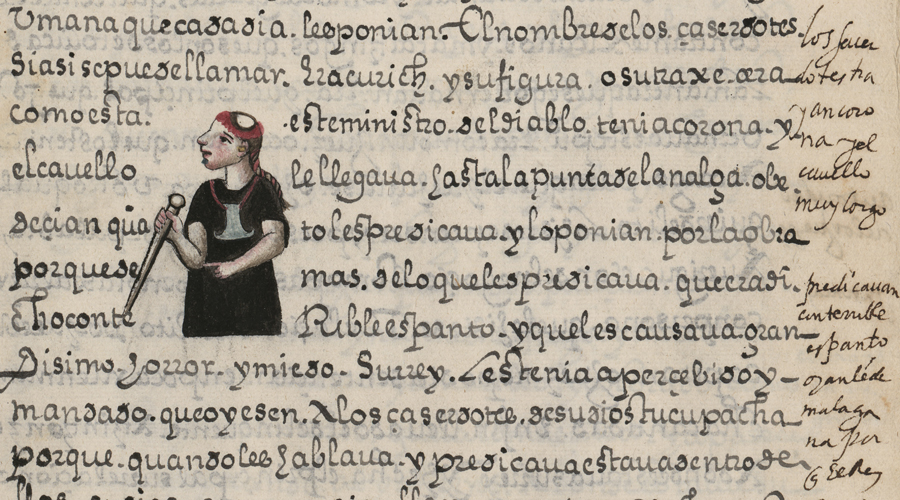 Umana que cada dia. les ponian. El nombre de los. çaserdotes.
Si asi se puede llamar. hracurich. y su figura. o su traxe. æra
como esta. este ministro. del diablo. tenia corona. y
el cavello le llegava. hasta la punta de la nalga. obe
decian qua to les predicava. y lo ponian. por la obra
porque de mas. de lo que les predicava. que era di
cho con te Rible espanto. y que les causava gran
Disimo. horror. y miedo. Su rrey. Les tenia apercebido y
mandado. que oyesen. A los çaserdotes. de su dios tucupacha
porque. quando les hablava. y predicava estava dentro de
los sacer
dotes tra
yan coro
na y el
cavello
muy largo
predicavan
con terrible
espanto